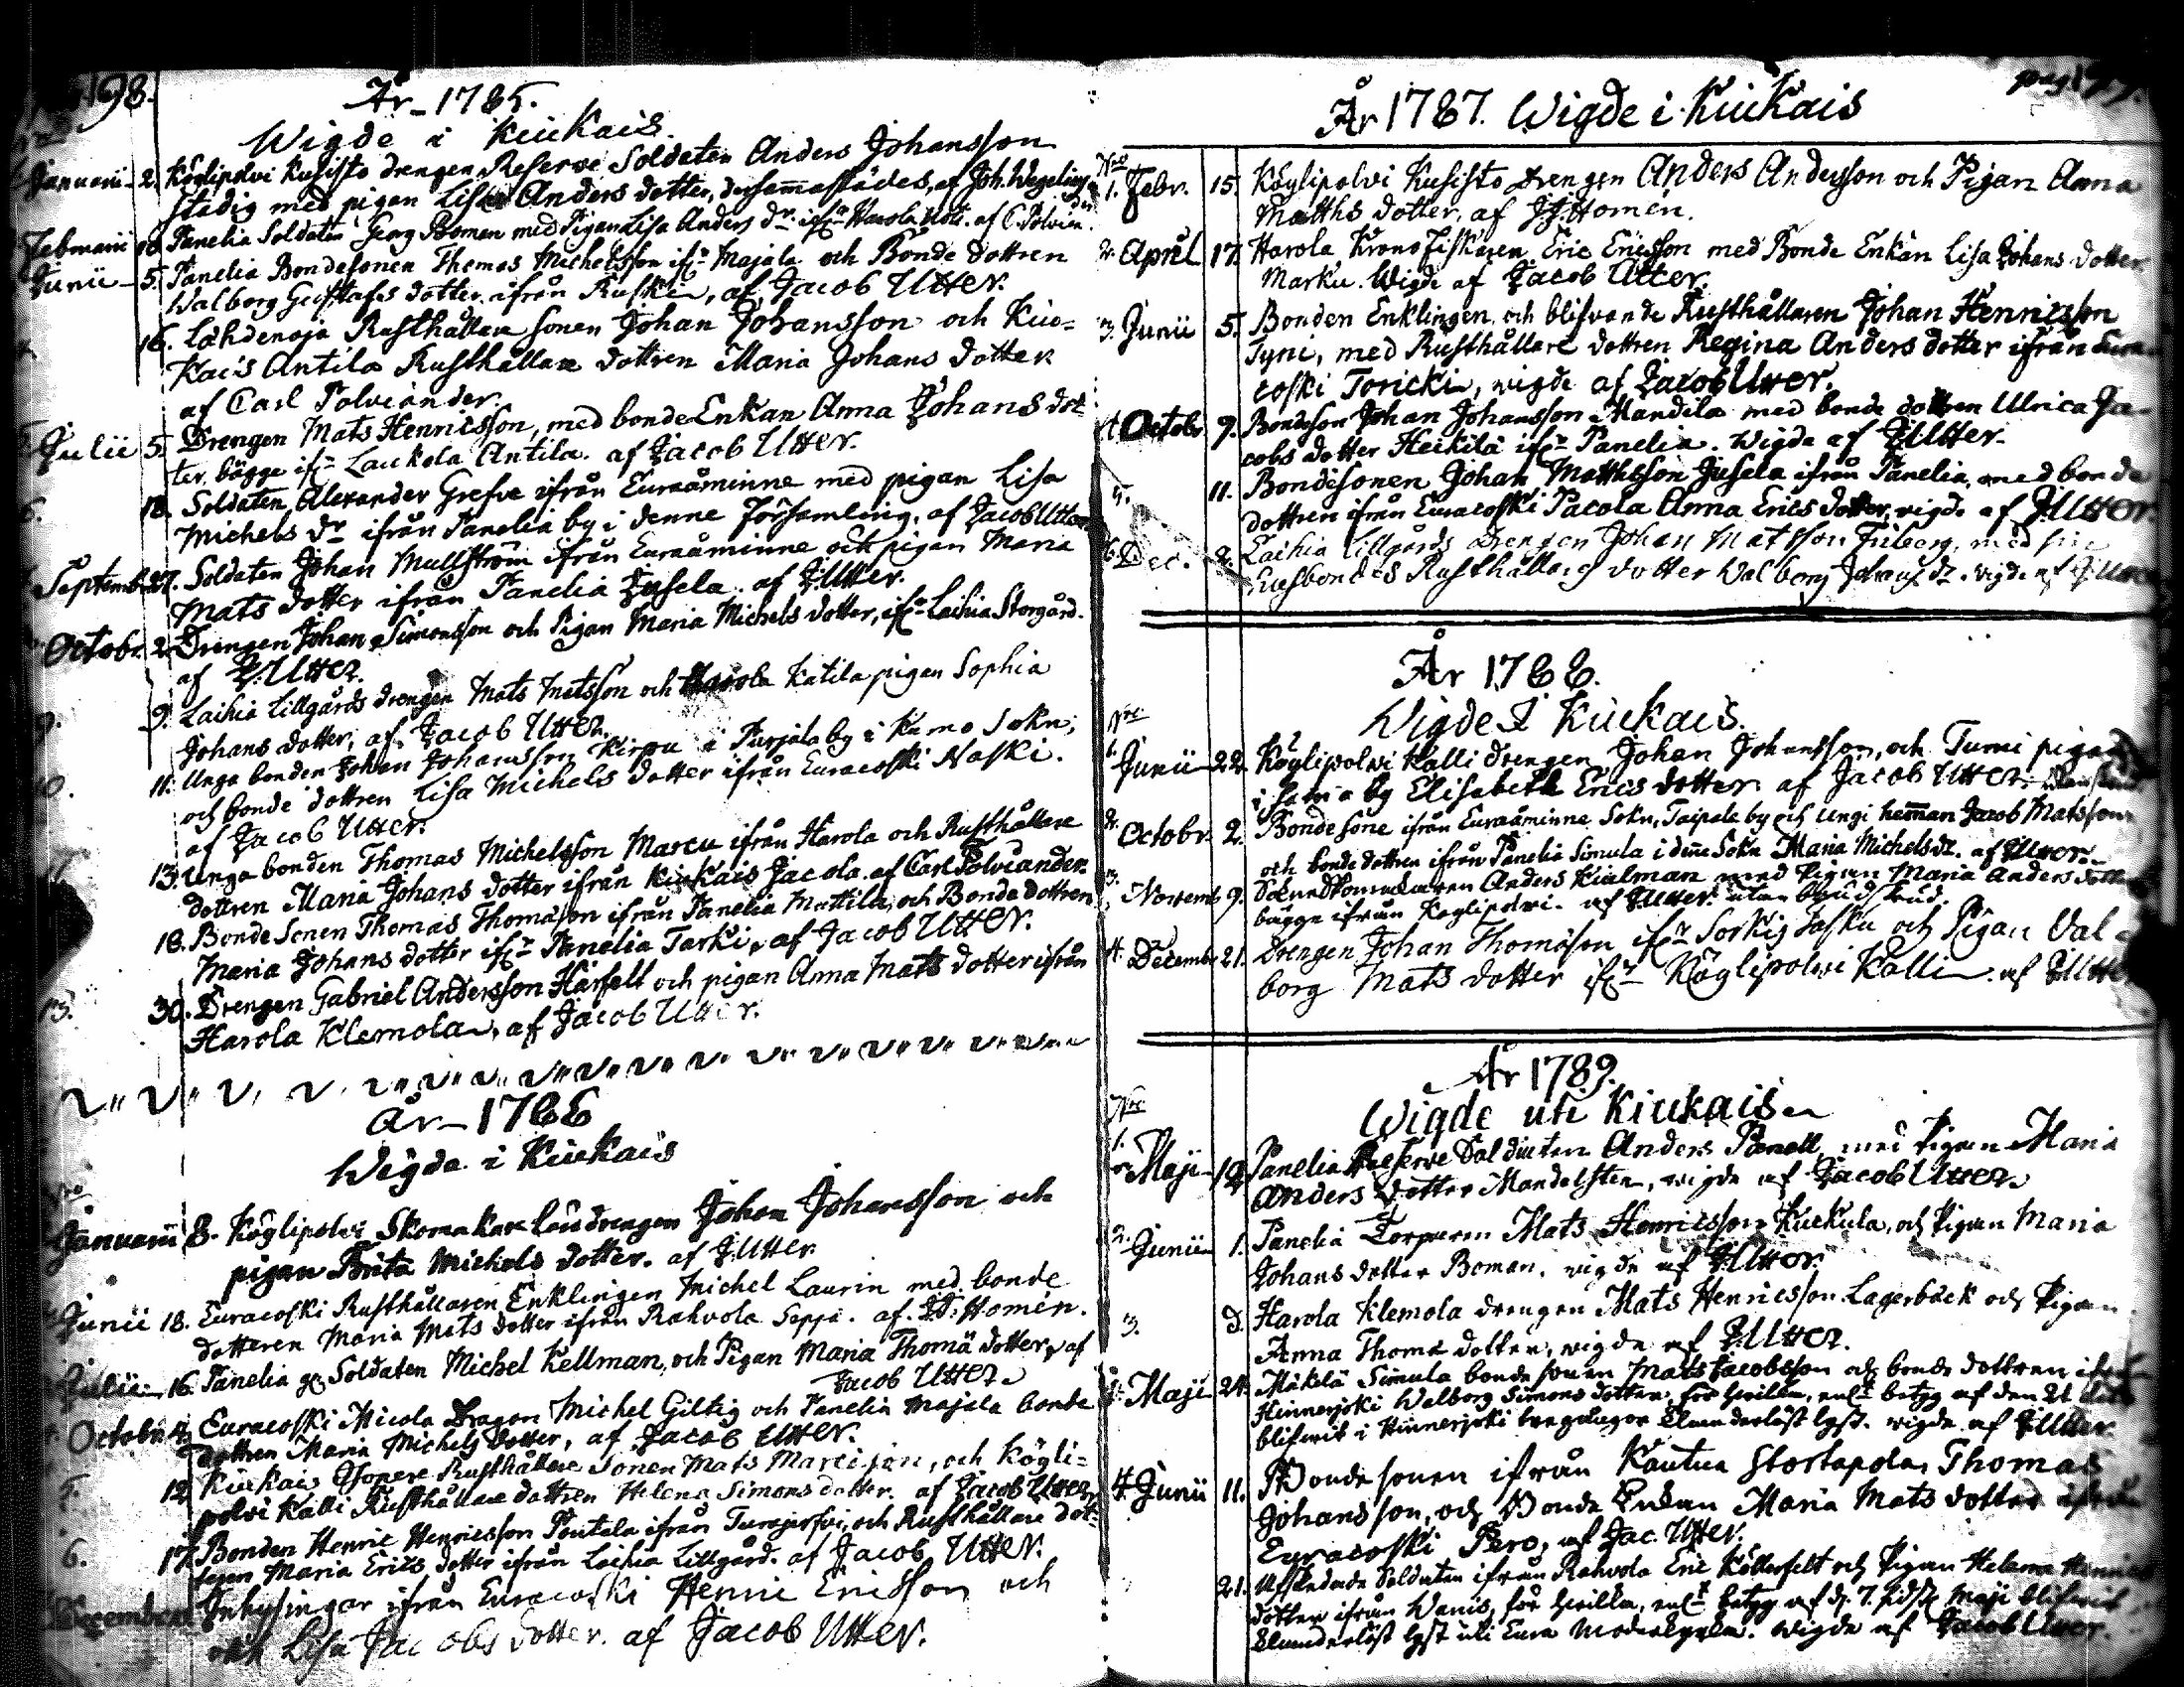 198.
År 1785.
Wigde i Kiukais.
Januarii 2. Köylipolvi Kusisto drengen Reserve Soldaten Anders Johansson
stadig med pigan Lisa Anders dotter, dersammastädes, af Joh. Wegelius
Februarii 10. Panelia Soldaten Georg Boman med Pigan Lisa Anders dr ifrn Harola af C Polvian
der
Junii 5. Panelia Bondesonen Thomas Michelsson ifrn Majala och Bonde dottren
Walborg Gustafs dotter ifrån Ruski, af Jacob Utter.
16. Lähdenoja Rusthållare sonen Johan Johansson och Kiu=
kais Antila Rusthållare dottren Maria Johans dotter
af Carl Polviander.
5. Julii 5. Drengen Mats Henricsson, med bonde Enkan Anna Johans dot=
ter, bägge ifrn Laukola Antila. af Jacob Utter.
6. 18. Soldaten Alexander Grefve ifrån Euraåminne med pigan Lisa
Michels dr ifrån Panelia by i denne Församling. af Jacob Utter
Septemb. 27. Soldaten Johan Mullström ifrån Euraåminne och pigan Maria
Mats dotter ifrån Panelia Jusela. af J. Utter.
Octobr. 2. Drengen Johan Simonsson och Pigan Maria Michels dotter, ifrn Laihia Storgård.
af J. Utter.
9. 9. Laihia Lillgårds drengen Mats Matsson och Harola Katila pigan Sophia
Johans dotter, af Jacob Utter.
10. 11. Unga bonden Johan Johansson Kirpu i Purjala by i Kumo Sokn;
och bonde dottren Lisa Michels dotter ifrån Euracoski Naski.
af Jacob Utter.
13. Unga bonden Thomas Michelsson Marcu ifrån Harola och Rusthållare
dottren Maria Johans dotter ifrån Kiukais Jacola. af Carl Polviander.
18. Bonde Sonen Thomas Thomasson ifrån Panelia Mattila, och Bonde dottren
Maria Johans dotter ifrn Panelia Tarki, af Jacob Utter.
13. 30. Drengen Gabriel Andersson Härfelt och pigan Anna Mats dotter ifrån
Harola Klemola, af Jacob Utter.
år 1786
Wigde i Kiukais
Nro
Januarii 8. Köylipolvi Skomakare Läudrengen Johan Johansson och
pigan Brita Michels dotter. af J. Utter.
Junii 18. Euracoski Rusthållaren Enklingen Michel Laurin med bonde
dotteren Maria Mats dotter ifrån Rahvola Seppä. af Homén.
Julii 16. Panelia Soldaten Michel Kellman, och Pigan Maria Thomä dotter, af
Jacob Utter
Octobr. 4. Euracoski Micola Dragon Michel Giltig och Panelia Majala bonde
dottren Maria Michels dotter, af Jacob Utter.
5. 12. Kiukais Rusthållare Sonen Mats, och Kögli=
polvi Kalli Rusthållare dottren Helena Simons dotter. af Jacob Utter
6. 17. Bonden Henric Henricsson Pöntala ifrån, och Rusthållare dot=
tren Maria Erics dotter ifrån Laihia Lillgård. af Jacob Utter.
December Inhysingar ifrån Euracoski Henric Ericsson och
Lisa Jacobs dotter. af Jacob Utter.
pag
År 1787. Wigde i Kiukais
Nro
1. Febr. 15. Köylipolvi Kusisto Drengen Anders Andersson och Pigan Anna
Matths dotter, af Homen.
2. April 17. Harola Krono Fiskaren Eric Ericsson med Bonde Enkan Lisa Johans dotter
Marku. Wigde af Jacob Utter.
3. Junii 5. Bonden Enklingen och blifvande Rusthållaren Johan Henricsson
Tyni, med Rusthållare dottren Regina Anders dotter ifrån Eura
coski Toricki, wigde af Jacob Utter.
4. Octobr. 9. Bondeson Johan Johansson Mandila med bonde dottren Ulrica Ja=
cobs dotter Heikilä ifrn Panelia. Wigde af J. Utter.
5. 11. Bondesonen Johan Matthsson Jusela ifrån Panelia, med bonde
dottren ifrån Euracoski Pacola Anna Erics dotter, wigde af J. Utter.
6. Dec. Laihia Lillgårds Drengen Johan Matsson, med sin
Husbondes Rusthållares dotter Walborg Johans dr. Wigde af J. Utter
År 1788.
Wigde I Kiukais.
Nro
1. Junii 22. Köylipolvi Kalli drengen Johan Johansson, och Tumi pigan
i by Elisabeth Erics dotter. af Jacob Utter.
2. Octobr. 2. Bondesone ifrån Euraåminne Sokn, Taipale by och Ungi heman Jacob Matsson
och bonde dottren ifrån Panelia Simula i denne Sokn Maria Michels dr. af J. Utter.
3. Novemb. 9. Anders Kialman med Pigan Maria Anders dotter
bägge ifrån Köylipolvi. af J. Utter. utan brudskrud.
4. Decemb. 21. Drengen Johan Thomasson ifrn Sorkis Jaska och Pigan Val=
borg Mats dotter ifrn Köylipolvi Kalli. af J. Utter
År 1789.
Wigde uti Kiukais
Nro
1. Maji Panelia Reserve Soldaten Anders Panell med Pigan Maria
Anders dotter Mandelsten, wigde af Jacob Utter
2. Junii 1. Panelia Torparen Mats Henricsson Kuckula, och Pigan Maria
Johans dotter Boman. wigde af J. Utter.
3. d. Harola Klemola drengen Mats Henricsson Lagerbäck och Pigan
Anna Thomä dotter, wigde af J. Utter.
Maji 24. Mäkelä Simula bonde sonen Mats Jacobsson och bonde dottren ifrån
Hinnerjoki Walborg Simons dotter, för hvilka, enl. betyg af den 21
blifwit i Hinnerjoki tregångor klanderlöst lyst. wigde af J. Utter.
4. Junii 11. Bonde sonen ifrån Kautua Stortapola, Thomas
Johansson, och Bonde Enkan Maria Mats dotter ifrån
Euracoski Pero, af Jac. Utter.
21. Afskedade Soldaten ifrån Rahvola Eric Köllerfelt och Pigan Helena Henrics
dotter ifrån Wanis, för hvilka, enl. betyg af d. 7. Maji blifwit
klanderlöst lyst uti Eura Moderkyrka. Wigde af Jacob Utter.